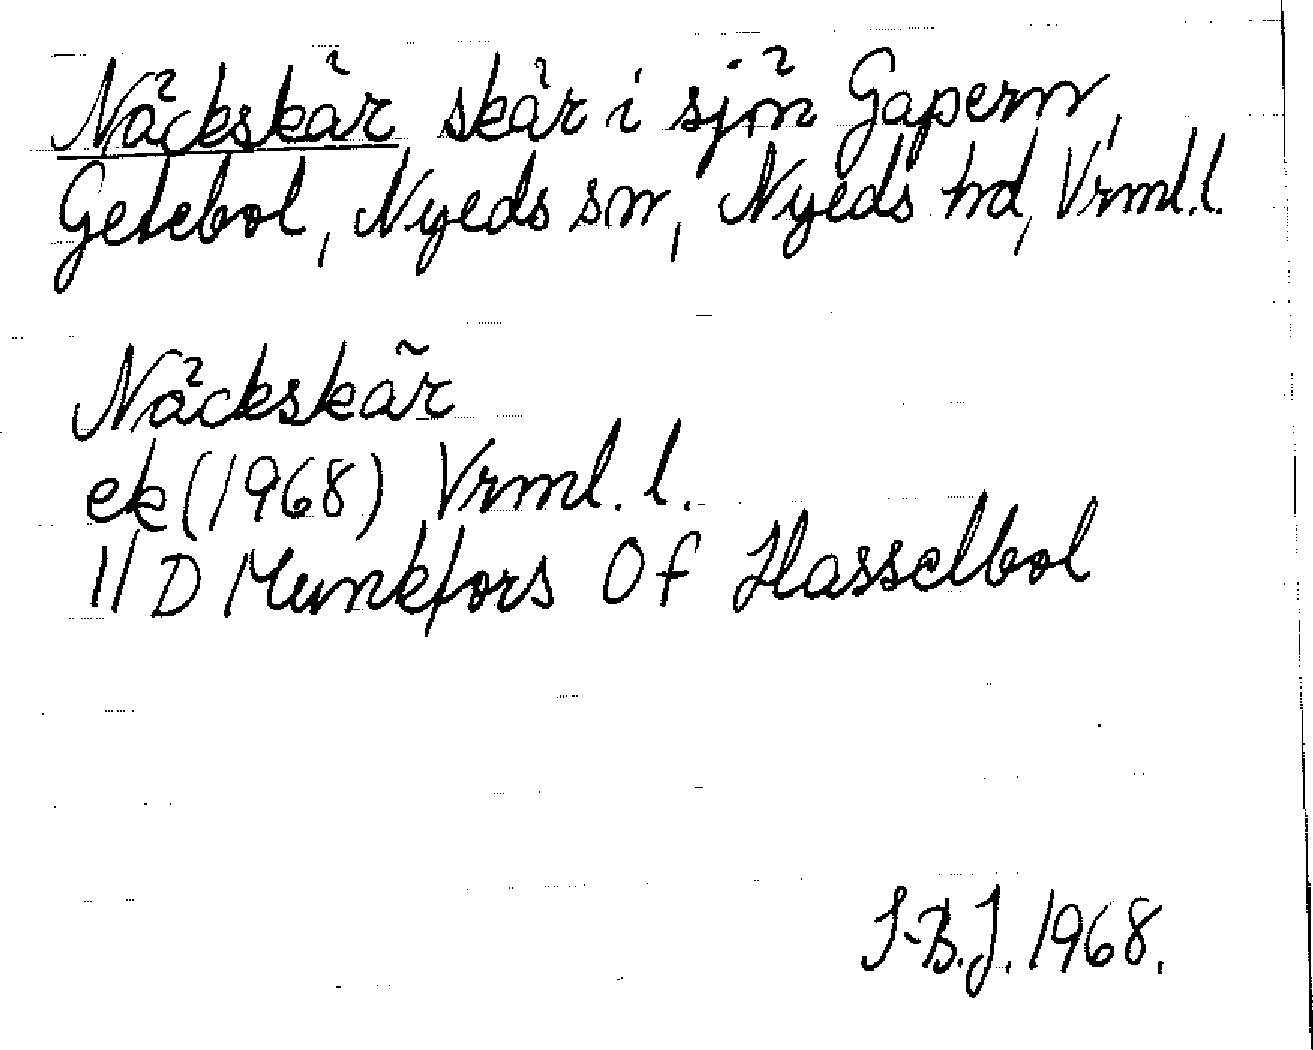 Näckskär skär i sjön Gapern,
Getebol, Nyeds sn, Nyeds hd, Vrml.l.
Näckskär
ek (1968) Vrml. l.
11 D Munkfors 0 f Hasselbol
I-B.J. 1968.